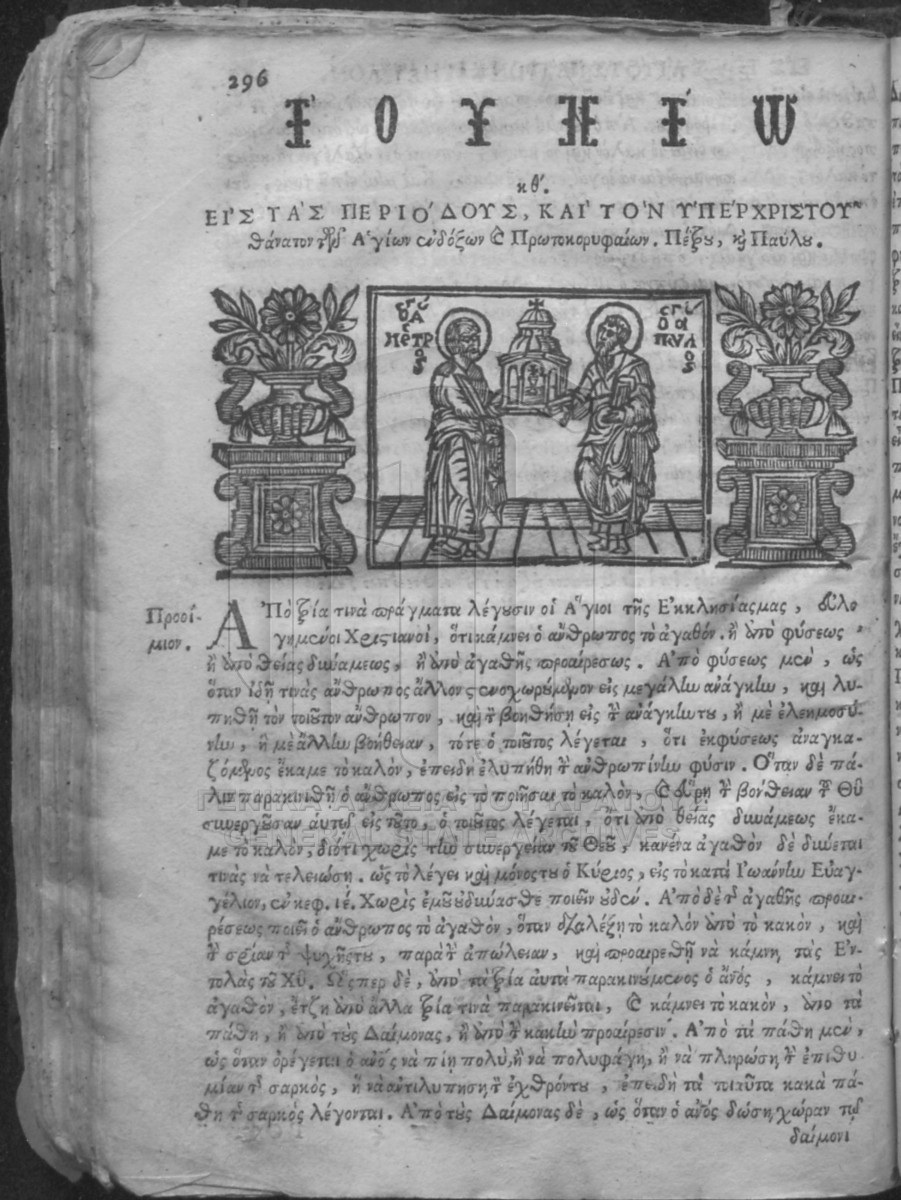 296
ΙΟΥΝΙΩ
κθ΄.
ΕΙ᾿Σ ΤΑ᾿Σ ΠΕΡΙΟ᾿ΔΟΥΣ, ΚΑΙ᾿ ΤΟ᾿Ν Υ᾿ΠΕ᾿Ρ ΧΡΙΣΤΟΥ͂
θάνατον τῶν Ἁγίων ἐνδόξων καὶ Πρωτοκορυφαίων. Πέτρου, καὶ Παύλου.
ΠΕΤΡ
ος
ΠΥΛ
ος
Προοί-
μιον.
ΑΠὸ τρία τινὰ πράγματα λέγουσιν οἱ Ἅγιοι τῆς Ἐκκλησίας μας, εὐλο
γημένοι Χριστιανοὶ, ὅτι κάμνει ὁ ἄνθρωπος τὸ ἀγαθόν. ἢ ἀπὸ φύσεως,
ἢ ἀπὸ θείας δυνάμεως, ἢ ἀπὸ ἀγαθῆς προαιρέσεως. Ἀπὸ φύσεως μὲν, ὡς
ὅταν ἰδῇ τινὰς ἄνθρωπος ἄλλον στενοχωρούμενον εἰς μεγάλην ἀνάγκην, καὶ λυ-
πηθῇ τὸν τοιοῦτον ἄνθρωπον, καὶ τὸν βοηθήσῃ εἰς τὴν ἀνάγκην του, ἢ μὲ ἐλεημοσύ-
νην, ἢ μὲ ἄλλην βοήθειαν, τότε ὁ τοιοῦτος λέγεται, ὅτι ἐκ φύσεως ἀναγκα-
ζόμενος ἔκαμε τὸ καλὸν, ἐπειδὴ ἐλυπήθη τὴν ἀνθρωπίνην φύσιν. Ὅταν δὲ πά-
λιν παρακινηθῇ ὁ ἄνθρωπος εἰς τὸ ποιῆσαι τὸ καλὸν, καὶ εὕρῃ τὴν βοήθειαν τοῦ Θῦ
συνεργοῦσαν αὐτῷ εἰς τοῦτο, ὁ τοιοῦτος λέγεται, ὅτι ἀπὸ θείας δυνάμεως ἔκα-
με τὸ καλὸν, διότι χωρὶς τὴν συνεργείαν τοῦ Θεοῦ, κανένα ἀγαθὸν δὲ δύνεται
τινὰς νὰ τελειώσῃ. ὡς τὸ λέγει καὶ μόνος του ὁ Κύριος, εἰς τὸ κατὰ Ἰωάννην Εὐαγ-
γέλιον, ἐν κεφ. ιέ. Χωρὶς ἐμοῦ οὐ δύνασθε ποιεῖν οὐδέν. Ἀπὸ δὲ τῆς ἀγαθῆς προαι-
ρέσεως ποιεῖ ὁ ἄνθρωπος τὸ ἀγαθὸν, ὅταν διαλέξῃ τὸ καλὸν ἀπὸ τὸ κακὸν, καὶ
τὴν σωτηρίαν τῆς ψυχῆς του, παρὰ τὴν ἀπώλειαν, καὶ προαιρεθῇ νὰ κάμνῃ τὰς Ἐν-
τολὰς τοῦ Χῦ. Ὥσπερ δὲ, ἀπὸ τὰ τρία αὐτὰ παρακινούμενος ὁ ἄνος, κάμνει τὸ
ἀγαθὸν, ἔτζη ἀπὸ ἄλλα τρία τινὰ παρακινεῖται, καὶ κάμνει τὸ κακὸν, ἀπὸ τὰ
πάθη, ἢ ἀπὸ τοὺς Δαίμονας, ἢ ἀπὸ τὴν κακὴν προαίρεσιν. Ἀπὸ τὰ πάθη μὲν,
ὡς ὅταν ὀρέγεται ὁ ἄνος νὰ πίῃ πολὺ, ἢ νὰ πολυφάγῃ, ἢ νὰ πληρώσῃ τὴν ἐπιθυ-
μίαν τῆς σαρκὸς, ἢ νὰ ἀντιλυπήσῃ τὸν ἐχθρόν του, ἐπειδὴ τὰ τοιαῦτα κακὰ πά-
θη τῆς σαρκὸς λέγονται. Ἀπὸ τοὺς Δαίμονας δὲ, ὡς ὅταν ὁ ἄνος δώσῃ χώραν τῷ
δαίμονι
ΓΕΝΙΚΑ ΑΡΧΕΙΑ ΤΟΥ ΚΡΑΤΟΥΣ
GENERAL STATE ARCHIVES